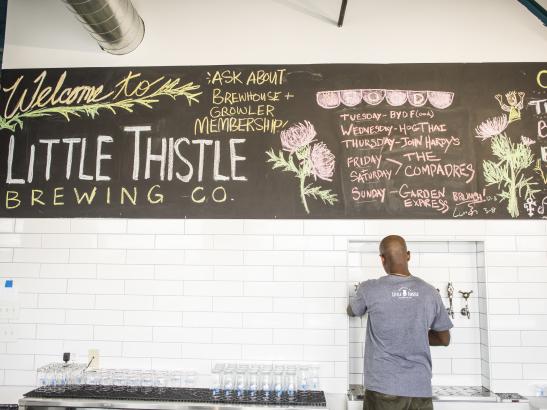 Welcome to
LITTLE THISTLE
BREWING CO.
ASK ABOUT
BREWHOUSE +
GROWLER
MEMBERSHIP!
FOOD
TUESDAY - BYOF(OOD)
WEDNESDAY - HOGTHAI
THURSDAY - JOHN HARDY'S
FRIDAY > THE
SATURDAY COMPADRES
SUNDAY - GARDEN
EXPRESS
BRUNCH!
3-8
LITTLE THISTLE